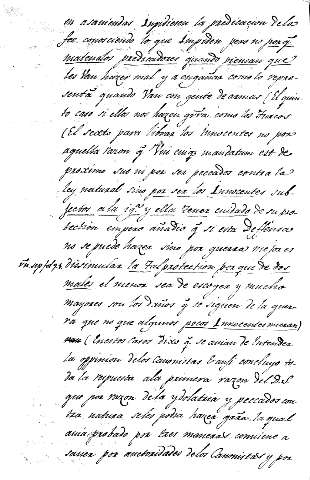 en asaviendas Impidiesen la predicacion de la
fee conosciendo lo que Impiden pero no porq̃
maten a los predicadores quando piensan que
les Van hazer mal y a engañar como lo repre-
senta quando Van con gente de armas (El quin
to caso si ellos nos hazen grã como los turcos
(El sexto para librar los Innocentes no por
aquella razon q̃ Uni cuiq mandatum est de
proximo suo ni por ser peccados contra la
ley natural sino por ser los Innocentes sub-
jectos a la igª y ella tener cuidado de su pro
tection empero añadio q̃ si esta deffensa
no se puede hazer sino por guerra mejor es
dissimular la tal protection porque de dos
males el menor sea de escoger y mucho
mayores son los daños q̃ se siguen de la gue-
rra que no que algunos pocos Innocentes mueran
(En estos casos Dixo q̃ se avian de Entender
la opinion de los canonistas E ansi concluyo to
da la respuesta a la primera razon del D.S.
que por razon de la ydolatria y peccados con
tra natura se les podia hazer grã. la qual
avia probado por tres maneras conviene a
saver por auctoridades de los Canonistas y por